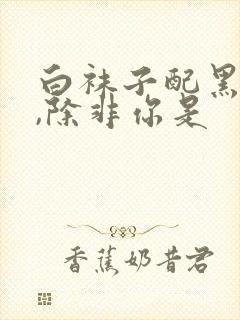 白袜子配黑
,除非你是
香蕉奶昔君